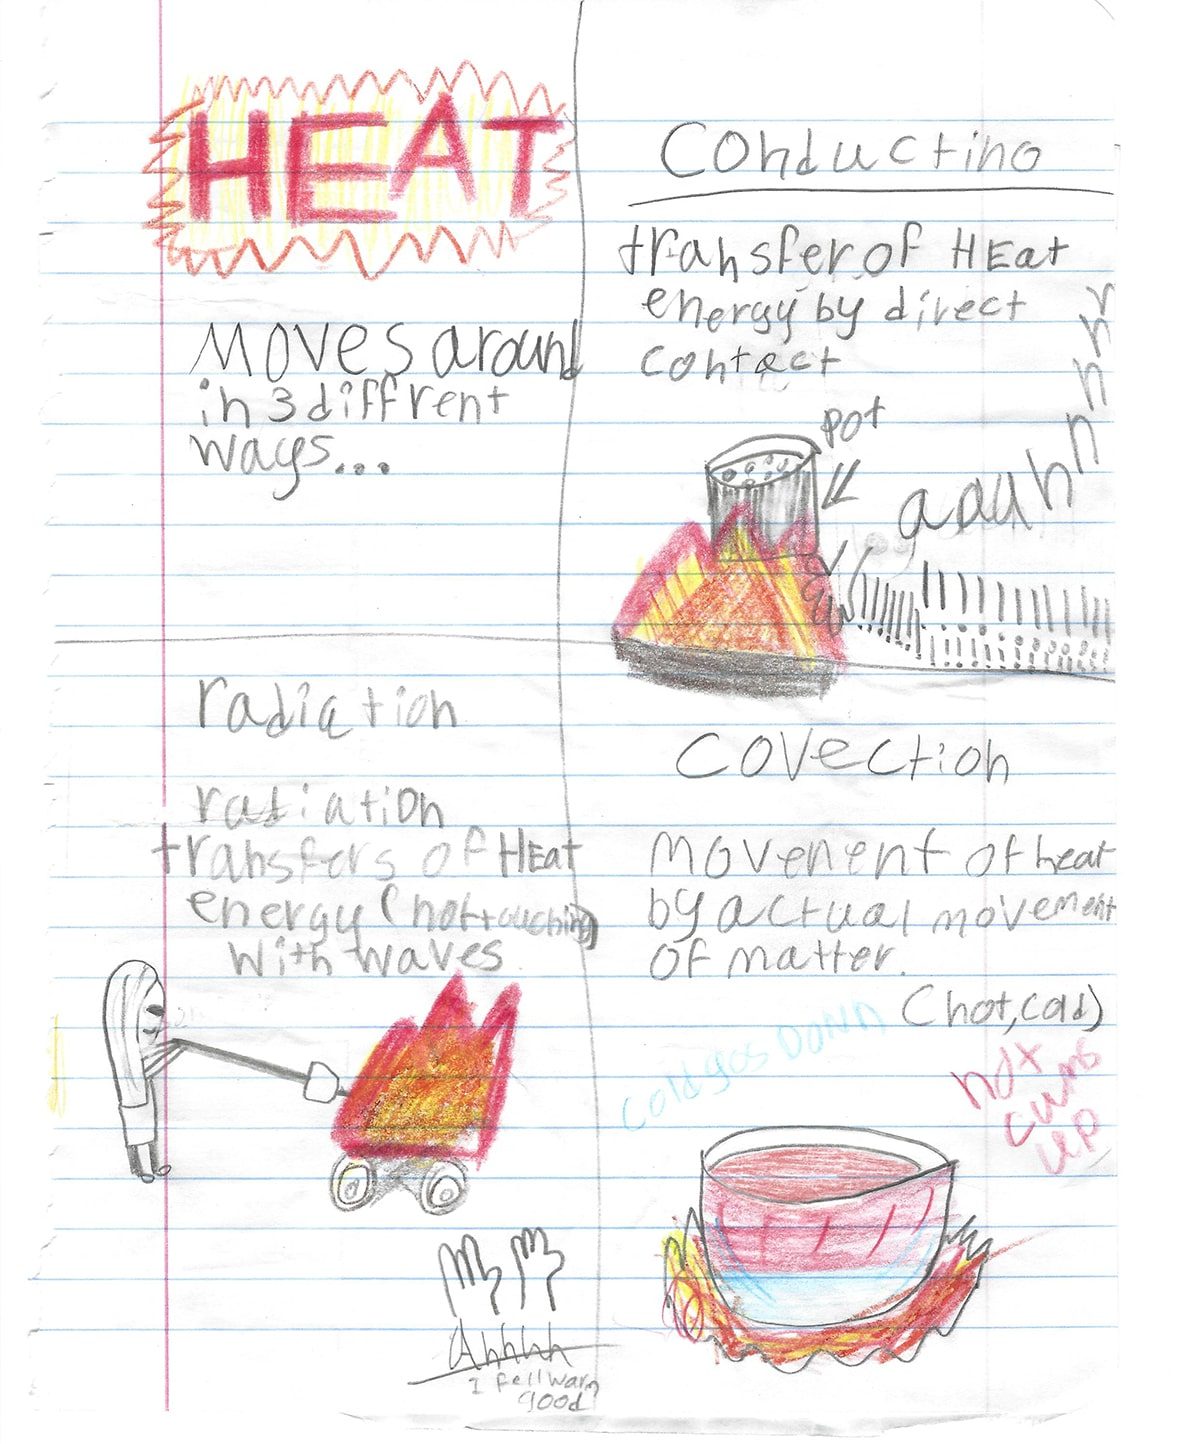 HEAT
Moves around
in 3 diffrent
ways...
Conductino
transfer of HEat
energy by direct
contact
pot
aauhhhhh
radiation
radiation
transfers of HEat
energy (not touching)
with waves
Ahhhhh
I fell warm
good
Covection
Movenent of heat
by actual movement
of matter.
(hot, cold)
Cold gos DoWN
hot
cums
up